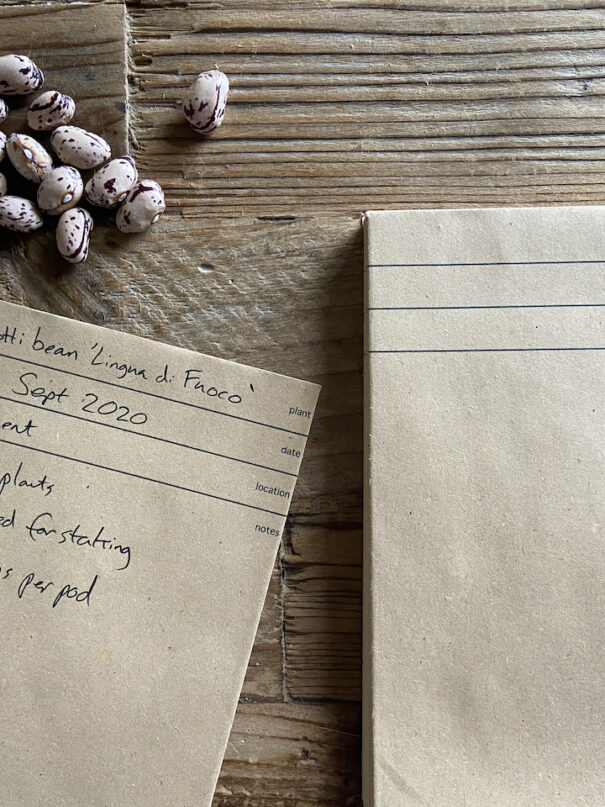 otti bean 'Lingua di Fuoco'
plant
Sept 2020
date
ent
location
plants
notes
ed for statting
s per pod